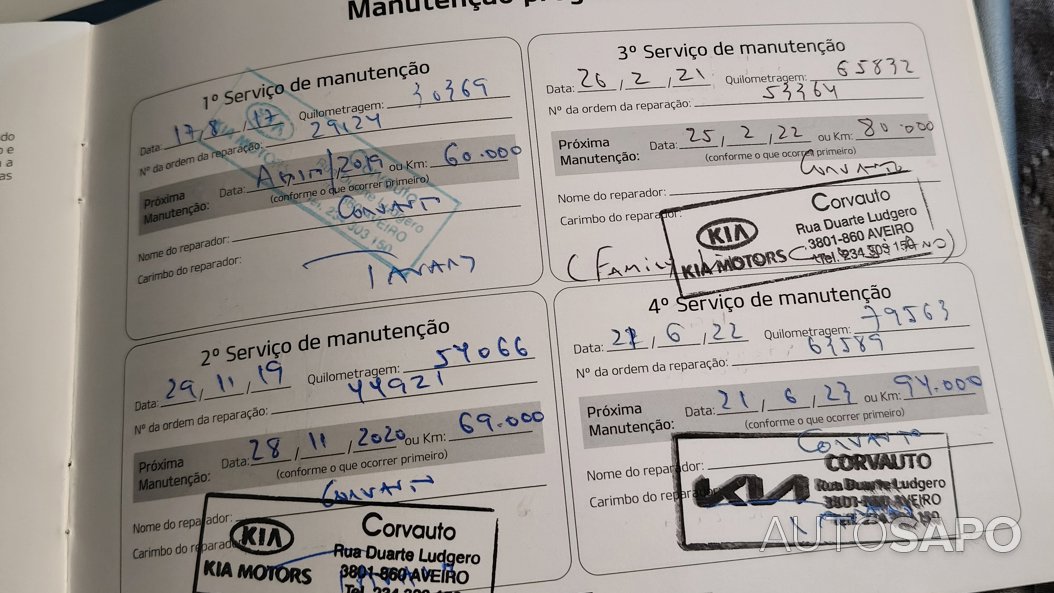 Manutenção
1º Serviço de manutenção
Data: 17/8/17 Quilometragem: 30369
Nº da ordem da reparação: 29124
Próxima Manutenção: Data: 2019 ou Km: 60.000
(conforme o que ocorrer primeiro)
Nome do reparador: Corvauto
Carimbo do reparador:
2º Serviço de manutenção
Data: 29/11/19 Quilometragem: 54066
Nº da ordem da reparação: 44921
Próxima Manutenção: Data: 28/11/2020 ou Km: 69.000
(conforme o que ocorrer primeiro)
Nome do reparador: Corvauto
Carimbo do reparador:
KIA
KIA MOTORS
Corvauto
Rua Duarte Ludgero
3801-860 AVEIRO
3º Serviço de manutenção
Data: 26/2/21 Quilometragem: 65832
Nº da ordem da reparação: 53364
Próxima Manutenção: Data: 25/2/22 ou Km: 80.000
(conforme o que ocorrer primeiro)
Nome do reparador: Corvauto
Carimbo do reparador:
KIA
KIA MOTORS
Corvauto
Rua Duarte Ludgero
3801-860 AVEIRO
4º Serviço de manutenção
Data: /6/22 Quilometragem: 79563
Nº da ordem da reparação: 63589
Próxima Manutenção: Data: 21/6/23 ou Km: 94.000
(conforme o que ocorrer primeiro)
Nome do reparador: Corvauto
Carimbo do
KIA
CORVAUTO
Rua Duarte Ludgero
AVEIRO
AUTOSAPO